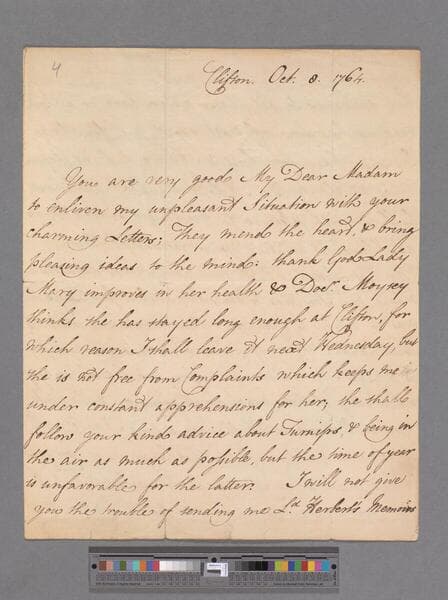 4
Clifton. Oct. 8. 1764.
You are very good My Dear Madam
to enliven my unpleasant Situation with your
charming Letters; They mend the heart, & bring
pleasing ideas to the mind: thank God Lady
Mary improves in her health & Docr. Moysey
thinks she has stayed long enough at Clifton, for
which reason I shall leave it next Wednesday, but
she is not free from Complaints which keeps me
under constant apprehensions for her; she shall
follow your kind advice about Turnips & being in
the air as much as possible, but the time of year
is unfavorable for the latter. I will not give
you the trouble of sending me Ld. Herbert's Memoirs